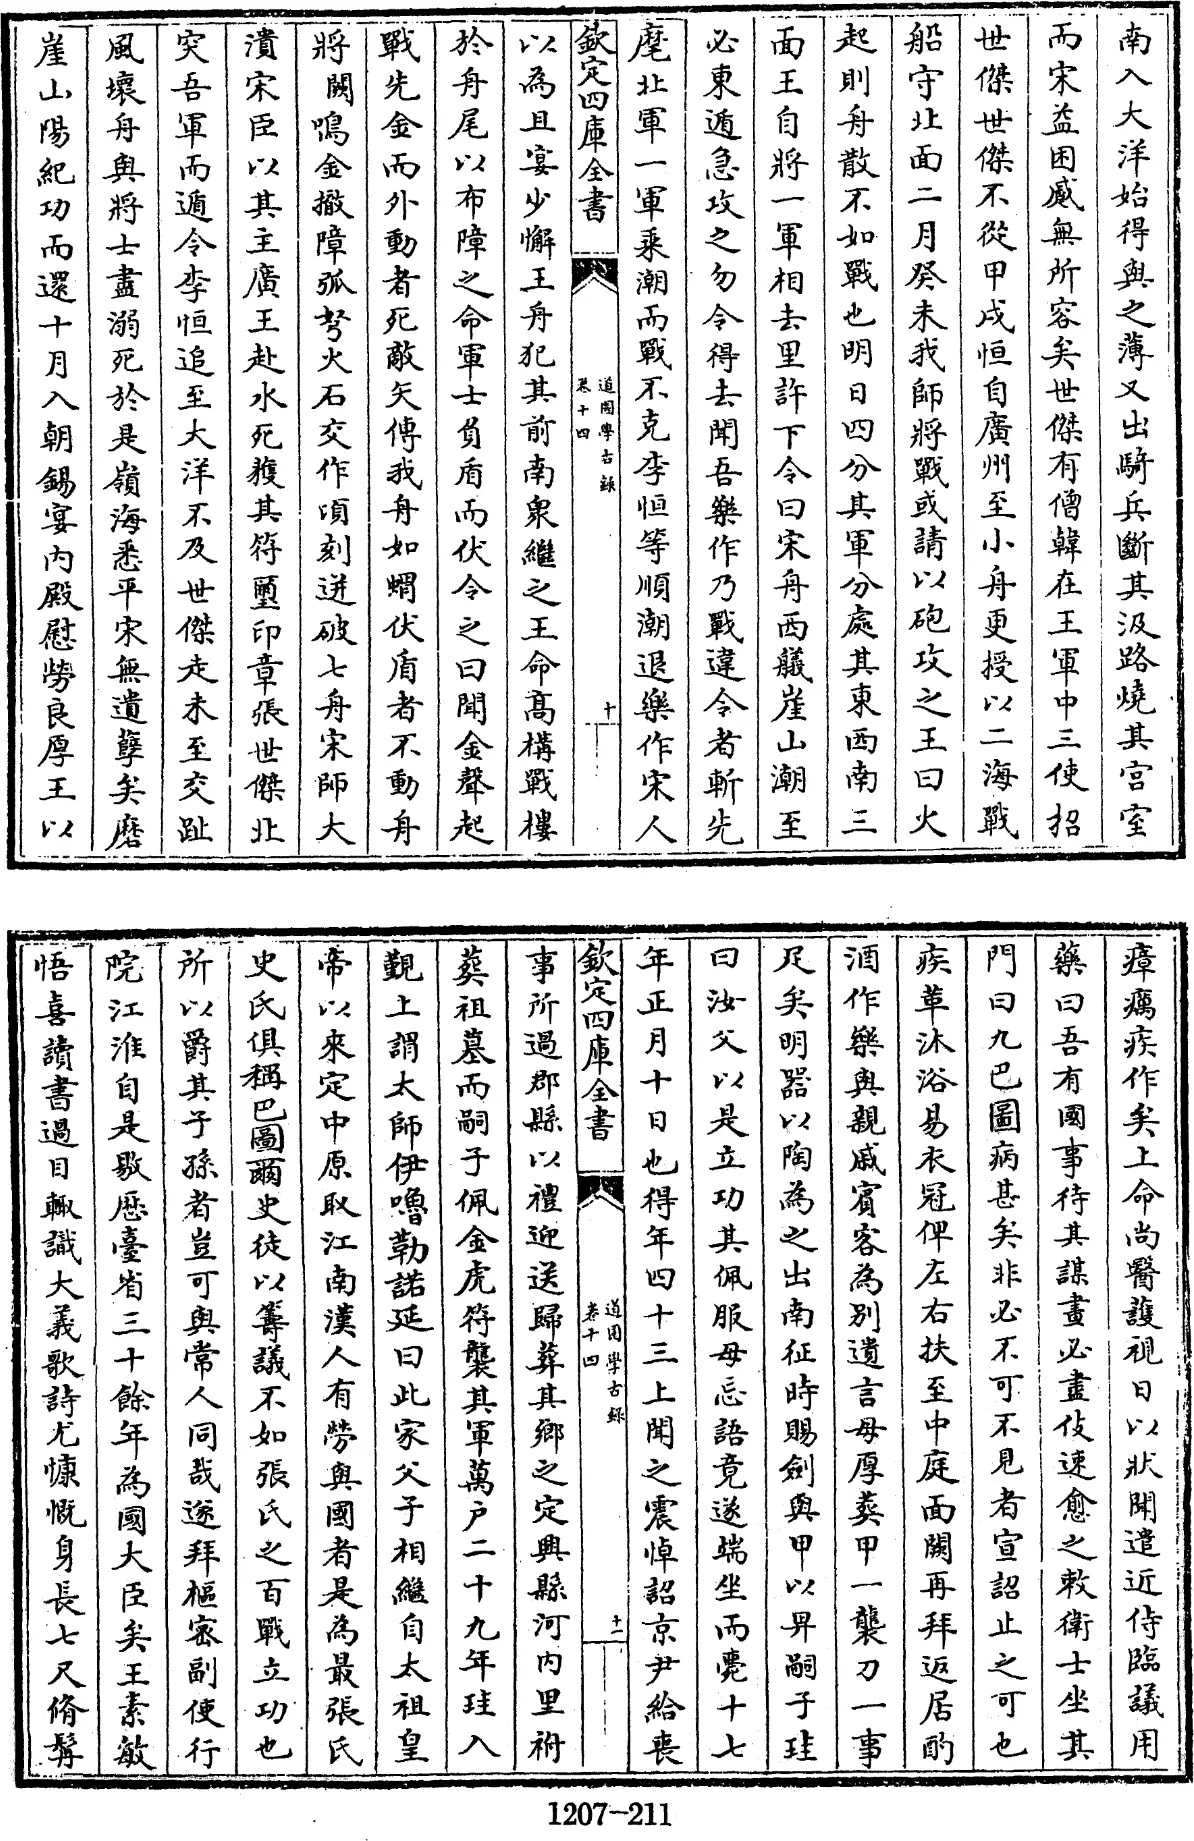 南入大洋始得與之薄又出騎兵斷其汲路燒其宫室
而宋益困蹙無所容矣世傑有僧韓在王軍中三使招
世傑世傑不從甲戌恒自廣州至小舟更授以二海戰
船守北面二月癸未我師將戰或請以砲攻之王曰火
起則舟散不如戰也明日四分其軍分處其東西南三
面王自將一軍相去里許下令曰宋舟西艤崖山潮至
必東遁急攻之勿令得去聞吾樂作乃戰違令者斬先
麾北軍一軍乘潮而戰不克李恒等順潮退樂作宋人
欽定四庫全書
道園學古録
卷十四
十
以為且宴少懈王舟犯其前南衆繼之王命髙構戰樓
於舟尾以布障之命軍士負盾而伏令之曰聞金聲起
戰先金而外動者死敵矢傅我舟如蝟伏盾者不動舟
將闕鳴金撤障弧弩火石交作頃刻迸破七舟宋師大
潰宋臣以其主廣王赴水死獲其符璽印章張世傑北
突吾軍而遁令李恒追至大洋不及世傑走未至交趾
風壞舟與將士盡溺死於是嶺海悉平宋無遺孽矣磨
崖山陽紀功而還十月入朝錫宴内殿慰勞良厚王以
瘴癘疾作矣上命尚醫護視日以狀聞遣近侍臨議用
藥曰吾有國事待其謀畫必盡伎速愈之敕衛士坐其
門曰九巴圖病甚矣非必不可不見者宣詔止之可也
疾革沐浴易衣冠俾左右扶至中庭面闕再拜返居酌
酒作樂與親戚賓客為别遺言毋厚葬甲一襲刀一事
足矣明器以陶為之出南征時賜劍與甲以畀嗣子珪
曰汝父以是立功其佩服毋忘語竟遂端坐而薨十七
年正月十日也得年四十三上聞之震悼詔京尹給喪
欽定四庫全書
道園學古録
卷十四
十一
事所過郡縣以禮迎送歸葬其鄉之定興縣河内里祔
葬祖墓而嗣子佩金虎符襲其軍萬户二十九年珪入
覲上謂太師伊嚕勒諾延曰此家父子相繼自太祖皇
帝以來定中原取江南漢人有勞與國者是為最張氏
史氏俱稱巴圖爾史徒以籌議不如張氏之百戰立功也
所以爵其子孫者豈可與常人同哉遂拜樞密副使行
院江淮自是敭歷臺省三十餘年為國大臣矣王素敏
悟喜讀書過目輙識大義歌詩尤慷慨身長七尺脩髯
1207-211